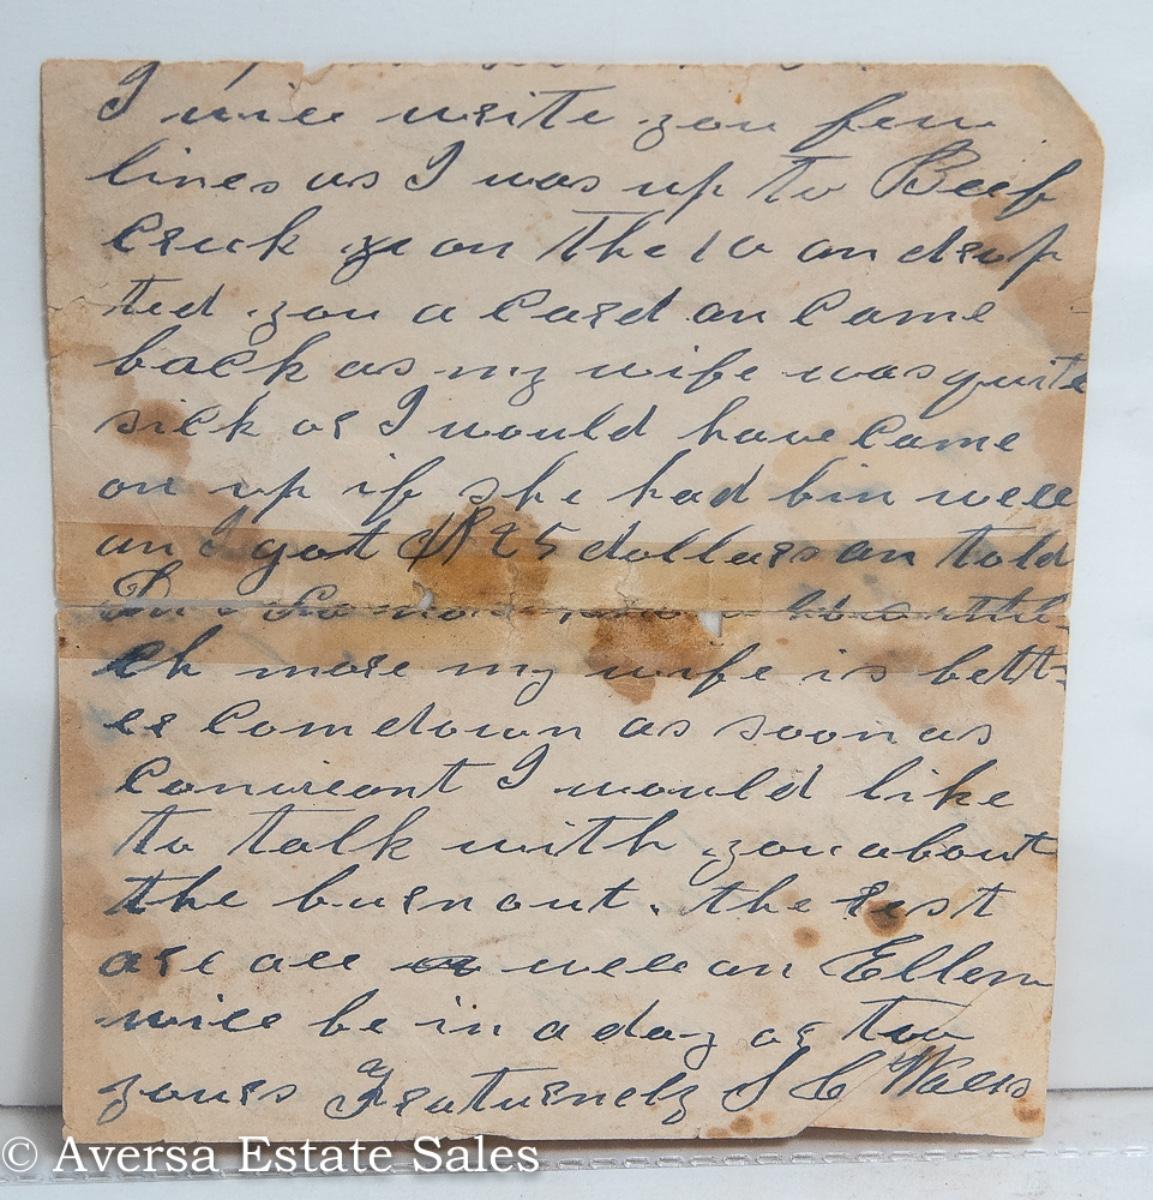 I will write you few
lines as I was up to Beef
Crick on the 10 an drop
ted you a Card an Came
back as my wife was quite
sick or I would have Came
on up if she had bin well
and I got $1825 dollars an told
ch more my wife is bett=
er Com down as soon as
Convieant I would like
to talk with you about
the burn out. the rest
are all well an Ellen
will be in a day or two
yours Fraturnely S C Walls
© Aversa Estate Sales